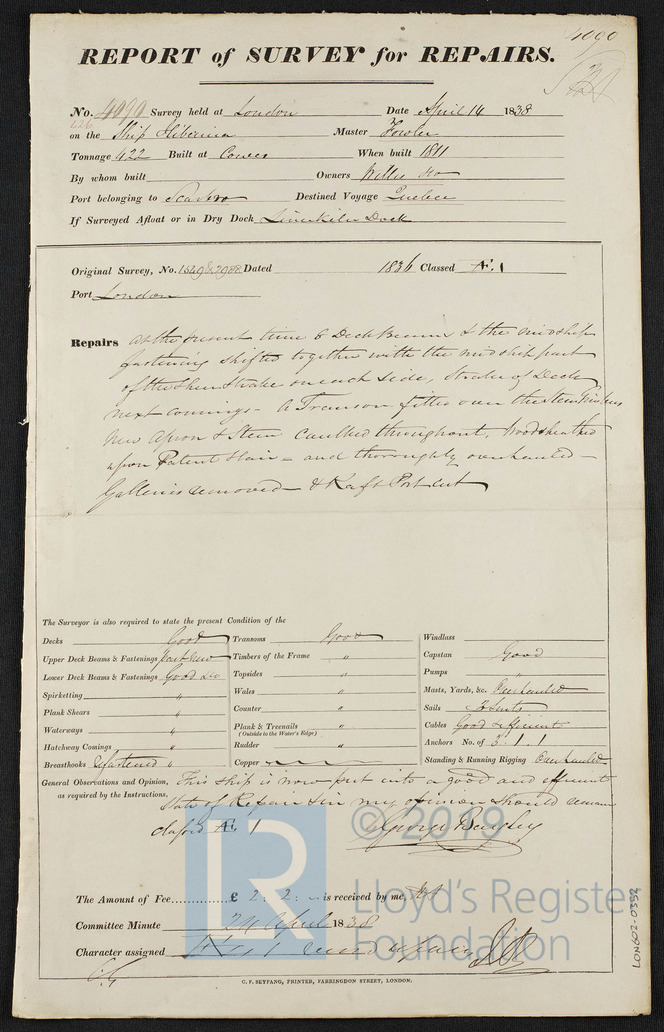 4090
REPORT of SURVEY for REPAIRS.
No. 4090 Survey held at London Date April 14 1838
on the Ship Hibernia Master Fowler
Tonnage 422 Built at Cowes When built 1811
By whom built Owners Willis & Co
Port belonging to Scarbro Destined Voyage Quebec
If Surveyed Afloat or in Dry Dock Limekiln Dock
Original Survey, No. 1549 & 2988 Dated 1836 Classed Æ. 1
Port London
Repairs At the present time 6 Deck Beams & the midship
fastening shifted together with the midship part
of the Sheer Strake on each side, Strake of Deck
next comings - A Transom fitted over the Stern timbers
New Apron & Stem Caulked throughout, Woodsheathed
upon Patent Hair - and thoroughly overhauled -
Galleries removed - & Raft Port cut
The Surveyor is also required to state the present Condition of the
Decks Good
Upper Deck Beams & Fastenings part New
Lower Deck Beams & Fastenings Good
Spirketting "
Plank Shears "
Waterways "
Hatchway Comings "
Breasthooks Refastened "
Transoms Good
Timbers of the Frame "
Topsides "
Wales "
Counter "
Plank & Treenails "
(Outside to the Water's Edge)
Rudder "
Copper
Windlass
Capstan Good
Pumps "
Masts, Yards, &c. Overhauled
Sails Suits
Cables Good & efficient
Anchors No. of 3. 1. 1
Standing & Running Rigging Overhauled
General Observations and Opinion, This ship is now put into a good and efficient
as required by the Instructions. State of Repair & in my opinion should remain
classed Æ 1
George Bayley
The Amount of Fee £ 2 : 2 : is received by me,
Committee Minute 24 April 1838
Character assigned Æ 1 record repairs
C. F. SEYFANG, PRINTER, FARRINGDON STREET, LONDON.
LON602-0392
© 2019
LR
Lloyd's Register
Foundation